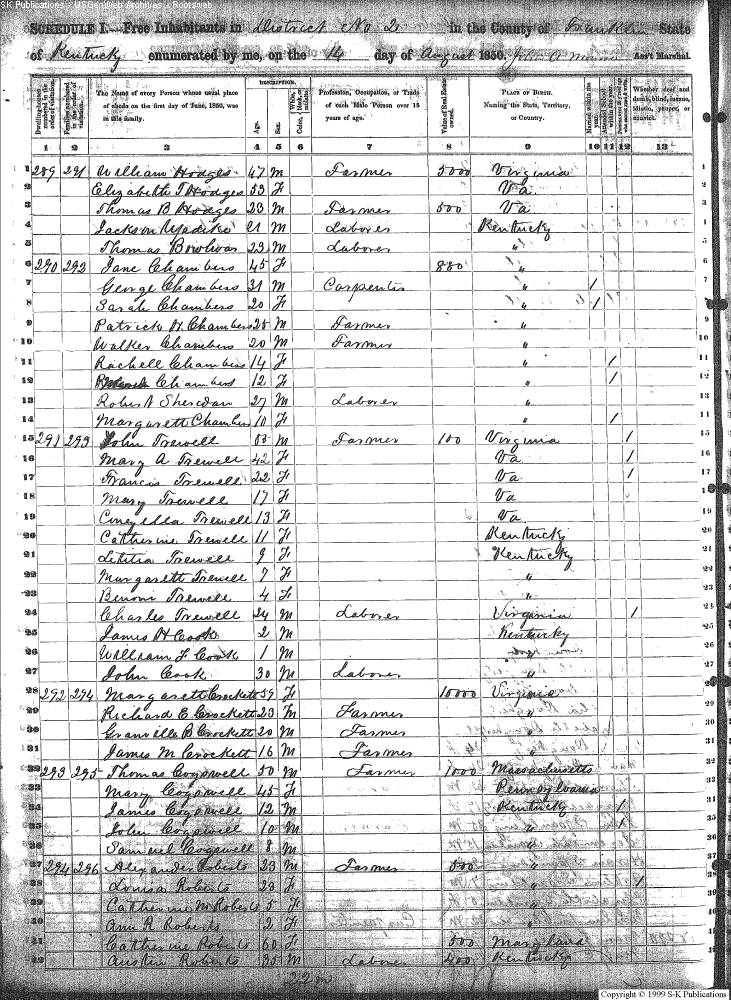 S-K Publications - USGenWeb Archives - Rootsweb
SCHEDULE I.—Free Inhabitants in District No 2 in the County of Franklin State
of Kentucky enumerated by me, on the 14 day of August 1850. Ass't Marshal.
Dwelling-houses numbered in the order of visitation.
Families numbered in the order of visitation.
The Name of every Person whose usual place of abode on the first day of June, 1850, was in this family.
DESCRIPTION.
Age.
Sex.
Color, White, black, or mulatto.
Profession, Occupation, or Trade of each Male Person over 15 years of age.
Value of Real Estate owned.
PLACE OF BIRTH. Naming the State, Territory, or Country.
Married within the year.
Attended School within the year.
Whether deaf and dumb, blind, insane, idiotic, pauper, or convict.
1 2 3 4 5 6 7 8 9 10 11 12 13
1 289 291 William Hodges 47 M Farmer 5000 Virginia 1
2 Elizabeth T Hodges 53 F Va 2
3 Thomas B Hodges 23 M Farmer 500 Va 3
4 Jackson 21 M Laborer Kentucky 4
5 Thomas 22 M Laborer " 5
6 290 292 Jane Chambers 45 F 880 " 6
7 George Chambers 31 M Carpenter " / 7
8 Sarah Chambers 20 F " / 8
9 Patrick H Chambers 25 M Farmer " 9
10 Walker Chambers 20 M Farmer " 10
11 Rachell Chambers 14 F " / 11
12 Chambers 12 F " / 12
13 Robert Sheredan 27 M Laborer " 13
14 Margarett Chambers 10 F " / 14
15 291 293 John Trewell M Farmer 100 Virginia / 15
16 Mary A Trewell 42 F Va / 16
17 Francis Trewell 22 F Va / 17
18 Mary Trewell 17 F Va 18
19 Trewell 13 F Va 19
20 Catherine Trewell 11 F Kentucky 20
21 Letitia Trewell 9 F Kentucky 21
22 Margarett Trewell 7 F " 22
23 Benoni Trewell 4 F " 23
24 Charles Trewell 24 M Laborer Virginia / 24
25 James H Cook 2 M Kentucky 25
26 William F Cook 1 M 26
27 John Cook 30 M Laborer " 27
28 292 294 Margarett Crockett 59 F 10000 Virginia 28
29 Richard E Crockett 23 M Farmer " 29
30 Granville B Crockett 20 M Farmer " 30
31 James M Crockett 16 M Farmer " 31
32 293 295 Thomas Cogswell 50 M Farmer 1000 Massachusetts
33 Mary Cogswell 45 F Pennsylvania
34 James Cogswell 12 M Kentucky /
35 John Cogswell 10 M " /
36 Samuel Cogswell 8 M "
37 294 296 Alexander Roberts 23 M Farmer 500 "
38 Louisa Roberts 23 F " /
39 Catherine M Roberts 5 F "
40 Ann R Roberts 2 F "
41 Catherine Roberts 60 F 500 Maryland
42 Austin Roberts 35 M Laborer 400 Kentucky
22 m
Copyright © 1999 S-K Publications